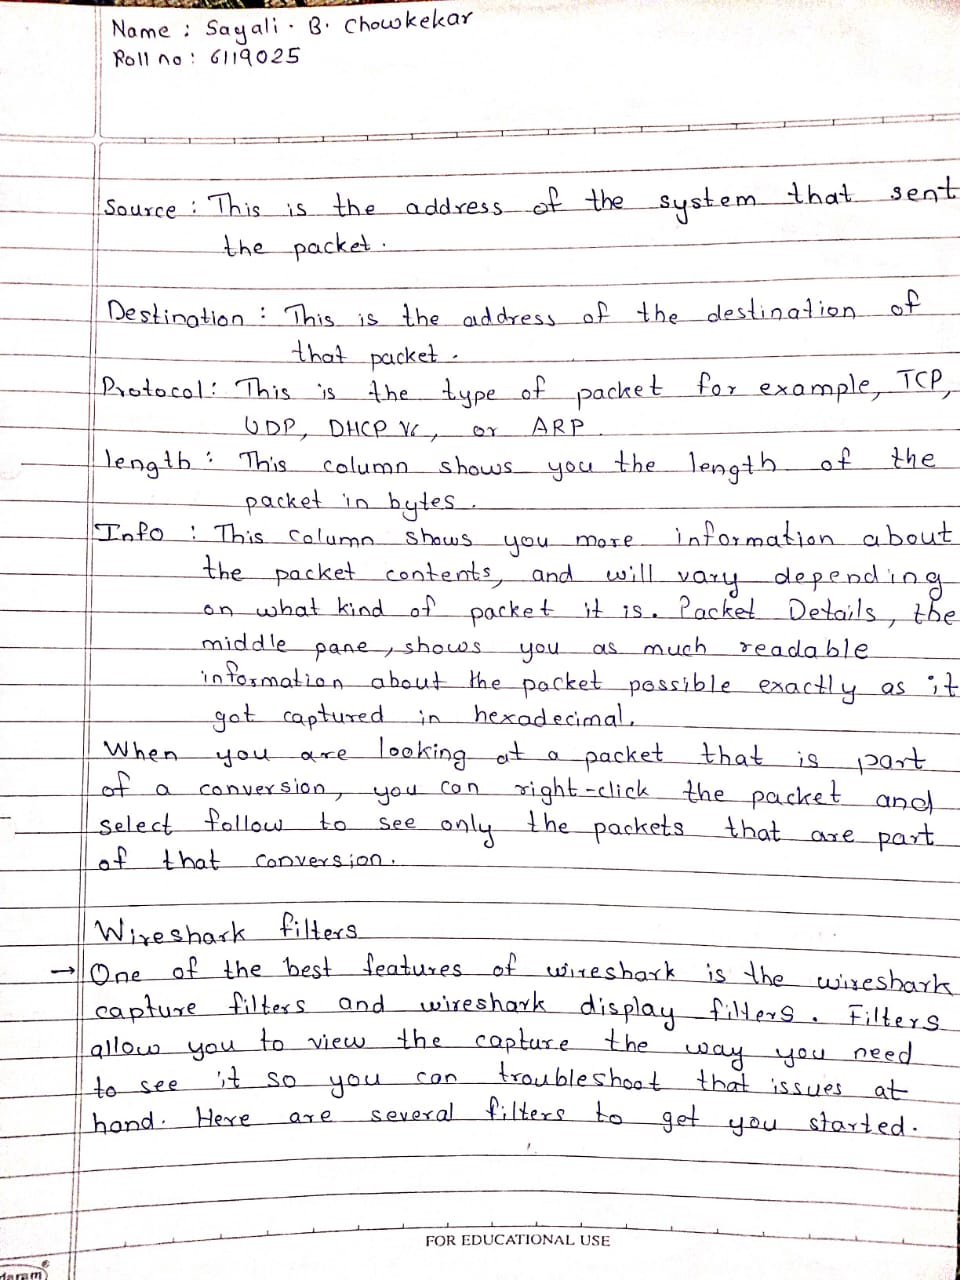 Name : Sayali . B. Chowkekar
Roll no : 6119025
Source : This is the address of the system that sent
the packet.
Destination : This is the address of the destination of
that packet.
Protocol : This is the type of packet for example, TCP,
UDP, DHCP V6, or ARP.
length : This column shows you the length of the
packet in bytes.
Info : This column shows you more information about
the packet contents, and will vary depending
on what kind of packet it is. Packet Details, the
middle pane, shows you as much readable
information about the packet possible exactly as it
got captured in hexadecimal.
When you are looking at a packet that is part
of a conversion, you can right-click the packet and
select follow to see only the packets that are part
of that conversion.
Wireshark filters
→ One of the best features of wireshark is the wireshark
capture filters and wireshark display filters. Filters
allow you to view the capture the way you need
to see it so you can troubleshoot that issues at
hand. Here are several filters to get you started.
FOR EDUCATIONAL USE